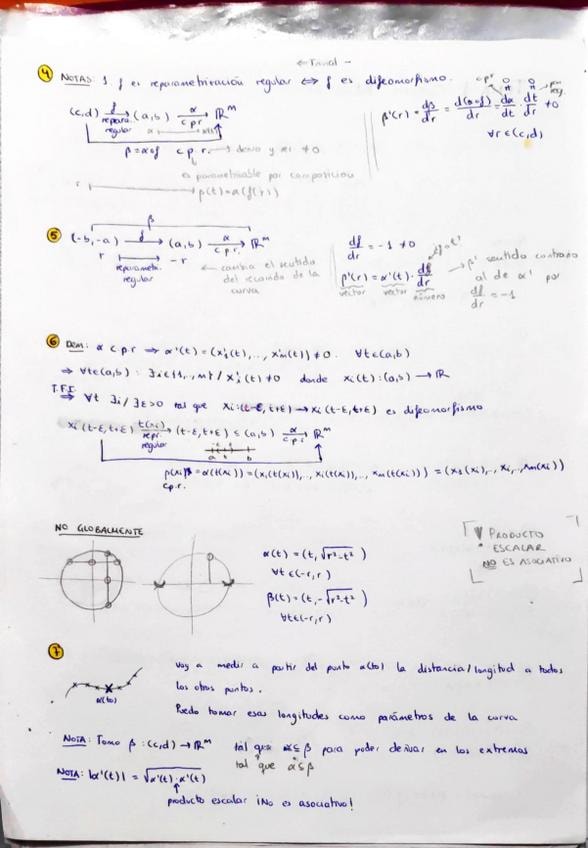 ← Trivial -
4 NOTAS: 1. f es reparametrización regular ⇔ f es difeomorfismo.
(c,d) f→ (a,b) α→ ℝᵐ
repara. regular
c p r
β = α∘f c p r. → derivo y es ≠0
es parametrizable por composición
r ⟼ β(t)=α(f(r))
β'(r) = dβ/dr = d(α∘f)/dr = dα/dt · dt/dr ≠ 0
∀r ∈ (c,d)
β
5 (-b,-a) f→ (a,b) α→ ℝᵐ
c p r.
r ⟼ -r
reparametri. regular
← cambia el sentido
del recorrido de la
curva
df/dr = -1 ≠ 0
β'(r) = α'(t) · df/dr
vector vector número
→ β' sentido contrario
al de α' por
df/dr = -1
6 Dem: α c p r ⇒ α'(t) = (x₁'(t),..., x'm(t)) ≠ 0. ∀t∈(a,b)
⇒ ∀t∈(a,b) : ∃i∈{1,..,m} / xi'(t) ≠ 0 donde xi(t):(a,b) → ℝ
T.F.I. ⇒ ∀t ∃i / ∃ε>0 tal que xi:(t-ε,t+ε) → xi(t-ε,t+ε) es difeomorfismo
xi(t-ε,t+ε) t(xi)→ (t-ε,t+ε) ⊆ (a,b) α→ ℝᵐ
repr. regular
a t b
β(xi) = α(t(xi)) = (x₁(t(xi)),.., xi(t(xi)),.., xm(t(xi))) = (x₁(xi),.., xi,.., xm(xi))
c.p.r.
NO GLOBALMENTE
α(t) = (t, √r²-t²)
∀t ∈(-r,r)
β(t) = (t, -√r²-t²)
∀t∈(-r,r)
PRODUCTO
ESCALAR
NO ES ASOCIATIVO
7
α(t₀)
Voy a medir a partir del punto α(t₀) la distancia/longitud a todos
los otros puntos.
Puedo tomar esas longitudes como parámetros de la curva
NOTA: Tomo β:(c,d) → ℝᵐ tal que α⊆β para poder derivar en los extremos
tal que α⊆β
NOTA: |α'(t)| = √α'(t)·α'(t)
producto escalar ¡No es asociativo!